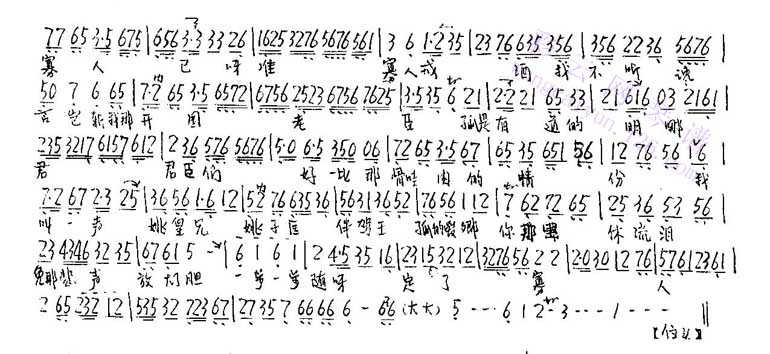 77 65 3·5 675 | 656 3·3 33 26 | 1625 3276 5676 561 | 3 6 1·2 35 | 23 76 635 356 | 356 22 36 5676 |
寡 人 己 呀 准 寡 人 戒 酒 我 不 听 谗
50 7 6 65 | 7·2 65 3·5 6572 | 6756 2523 6756 7625 | 3·5 35 6 21 | 2·2 21 65 33 | 21 616 03 2161 |
言 我那 开 国 老 臣 孤是 有 道 的 明 哪
235 3217 6157 612 | 2 36 576 5676 | 5·0 6·5 350 06 | 72 65 3·5 67 | 65 35 651 56 | 12 76 56 16 |
君 君臣们 好 一比 那 骨 肉 的 情 份 我
7·2 67 2·3 25 | 36 56 1·6 12 | 52 76 635 36 | 5631 36 52 | 76 56 1 12 | 7 62 72 65 | 25 36 53 56 |
叫 一 声 姚皇兄 姚子匡 伴驾王 孤的 卿 你那里 休 流 泪
23 4346 32 35 | 67 61 5 - | 6 1 6 1 | 2 4·5 35 16 | 23 15 32 12 | 3276 56 2 2 | 2·0 30 12 76 | 5761 2361 |
那 声 放大胆 一步一步随呀 定 了 寡 人
2 65 232 12 | 535 32 723 67 | 27 35 7 66 66 6 - 66 (大大) 5 ··· 6 1 2 3 ···· 1 ---- ‖